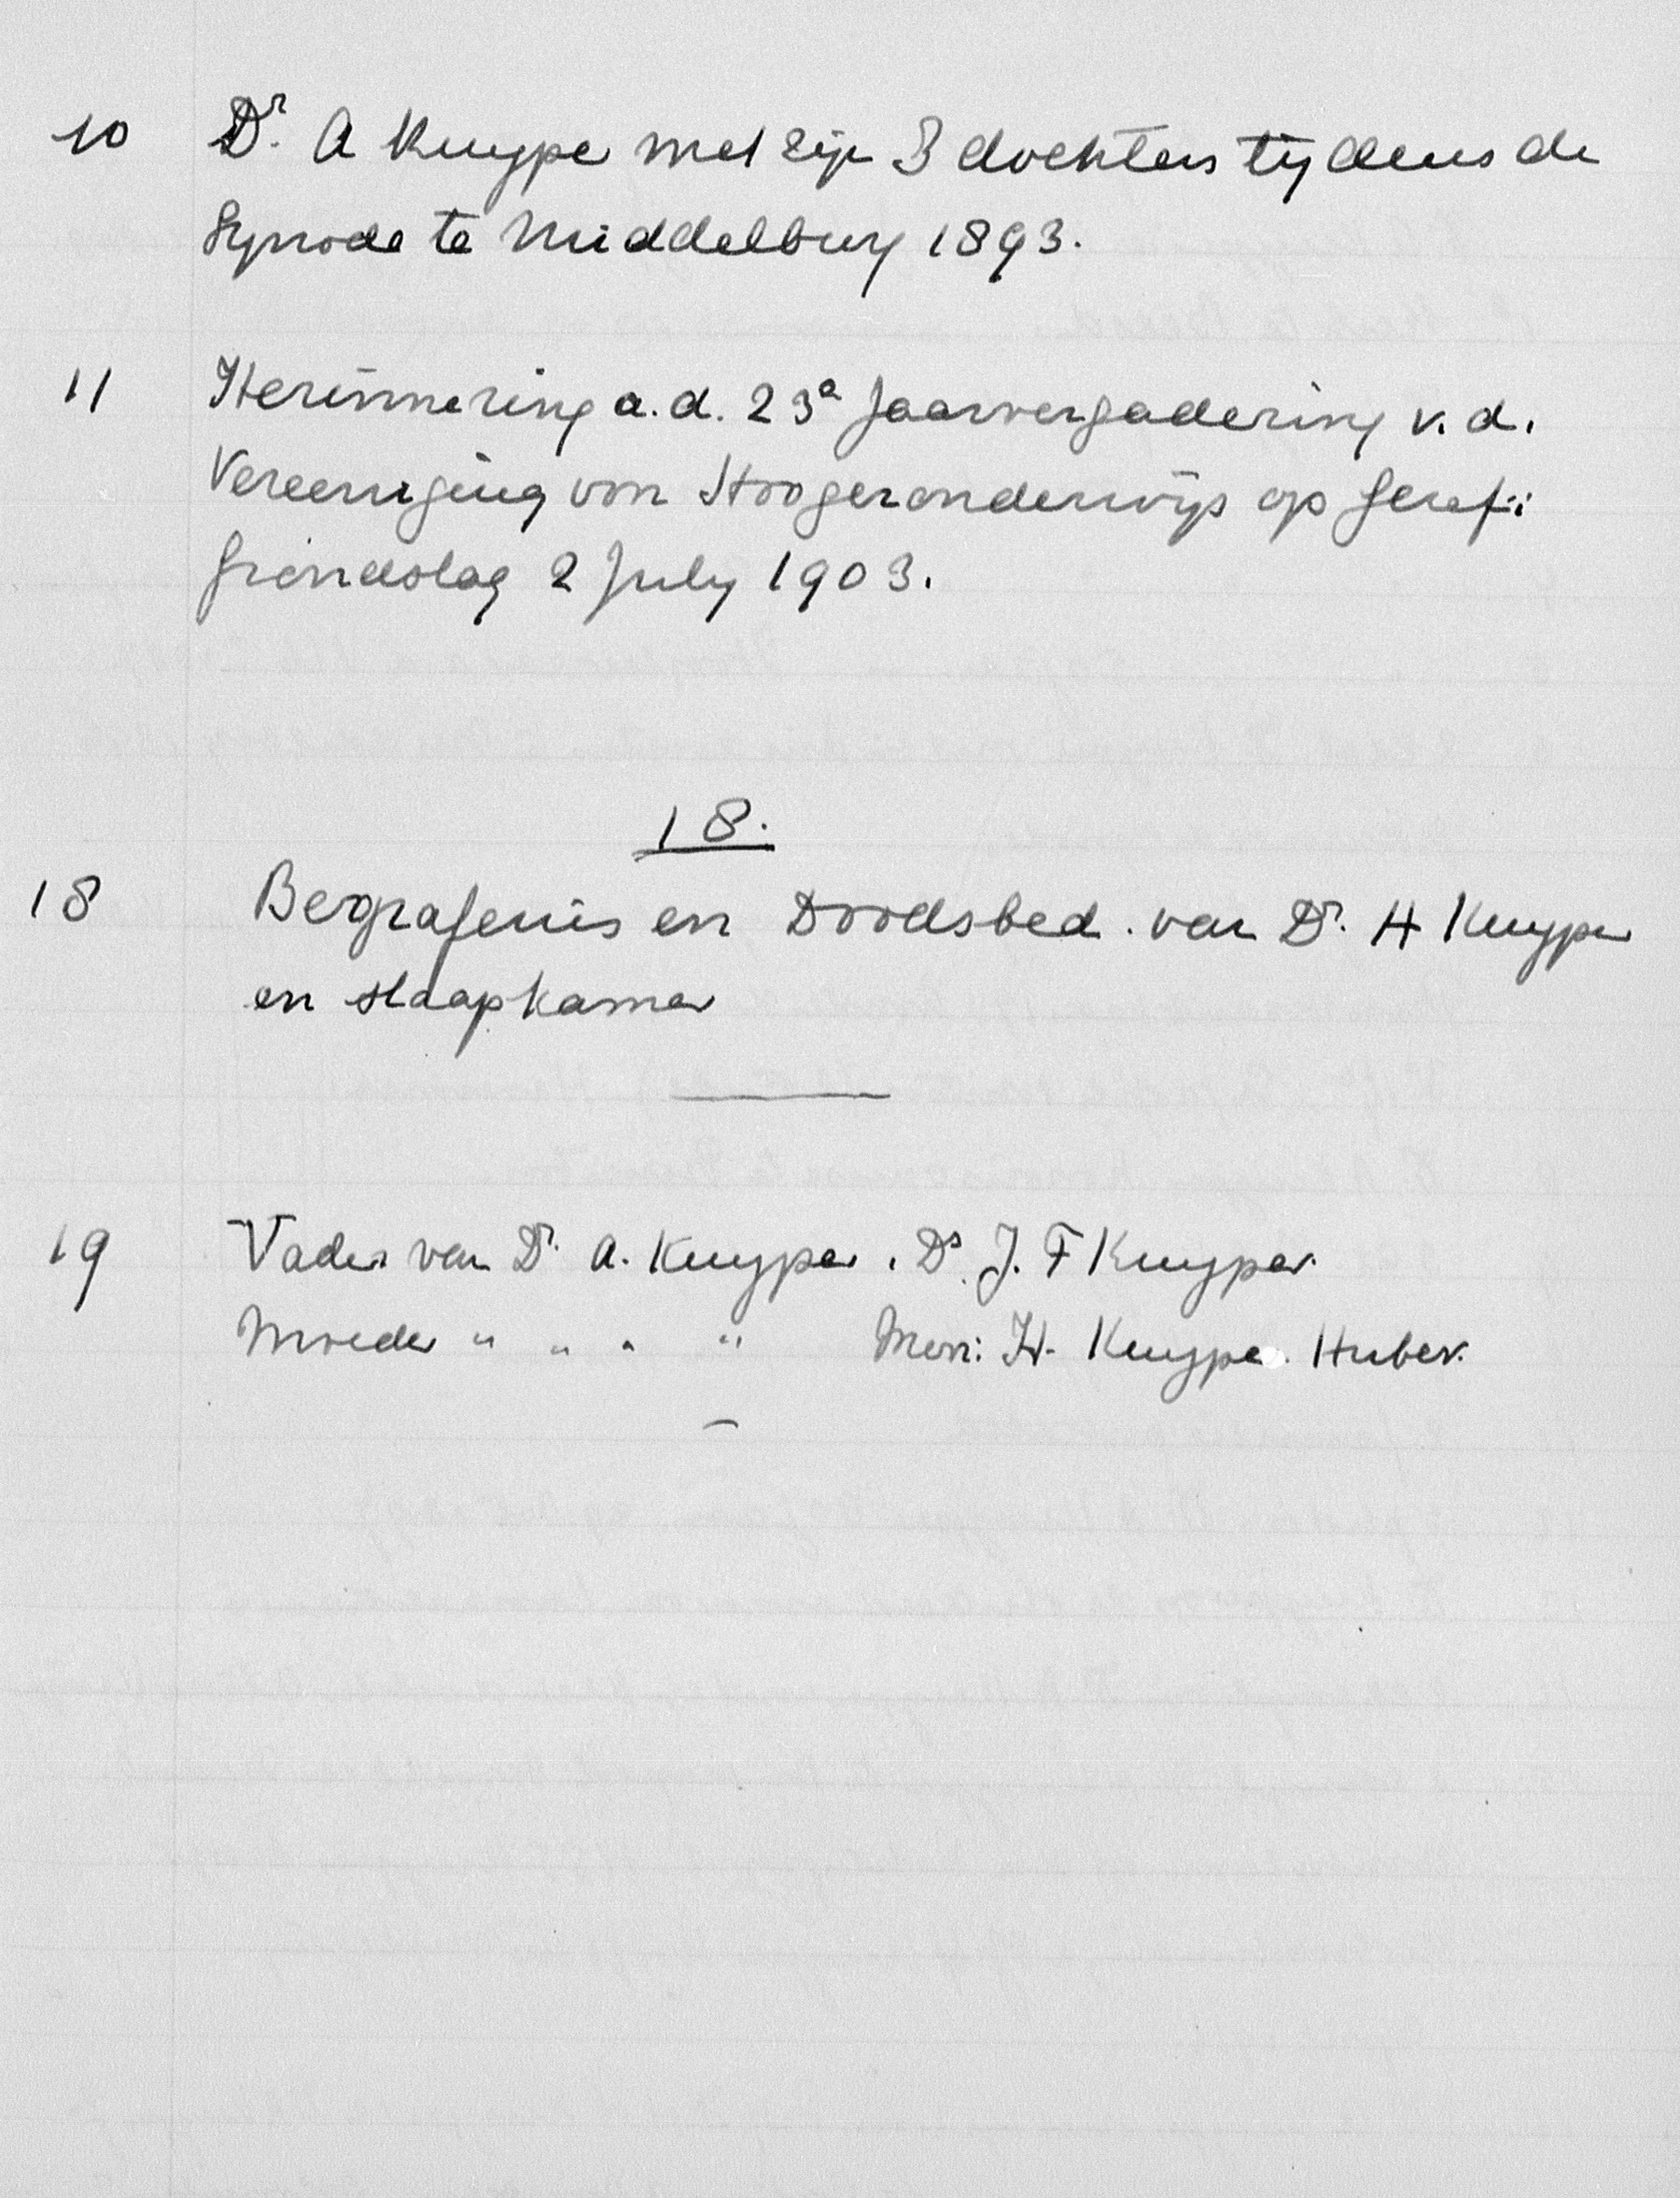 10 Dr. A Kuyper met zijn 3 dochters tijdens de
Synode te Middelburg 1893.
11 Herinnering a.d. 23e Jaarvergadering v.d.
Vereeniging von Hoogeronderwijs op Geref:
Grondslag 2 July 1903.
18.
18 Begrafenis en Doodsbed. van Dr. H Kuyper
en slaapkamer
19 Vader van Dr. A. Kuyper. Ds. J. F Kuyper.
Moeder " " " " Mevr: H. Kuyper. Huber.